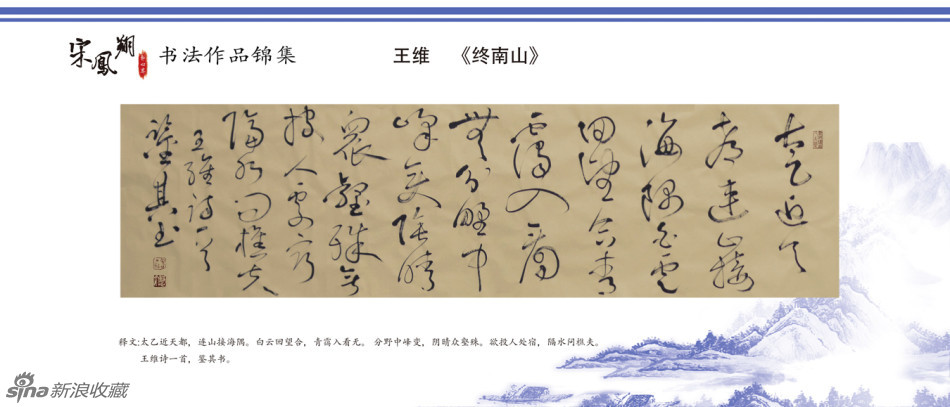 宋鳳翔 书法作品锦集 王维 《终南山》
太乙近天
都連山接
海隅白雲
回望合青
靄入看
無分野中
峰變陰晴
眾壑殊欲
投人處宿
隔水问樵夫
王維詩一首
鑒其書
释文:太乙近天都，连山接海隅。白云回望合，青霭入看无。 分野中峰变，阴晴众壑殊。欲投人处宿，隔水问樵夫。
王维诗一首，鉴其书。
sina 新浪收藏